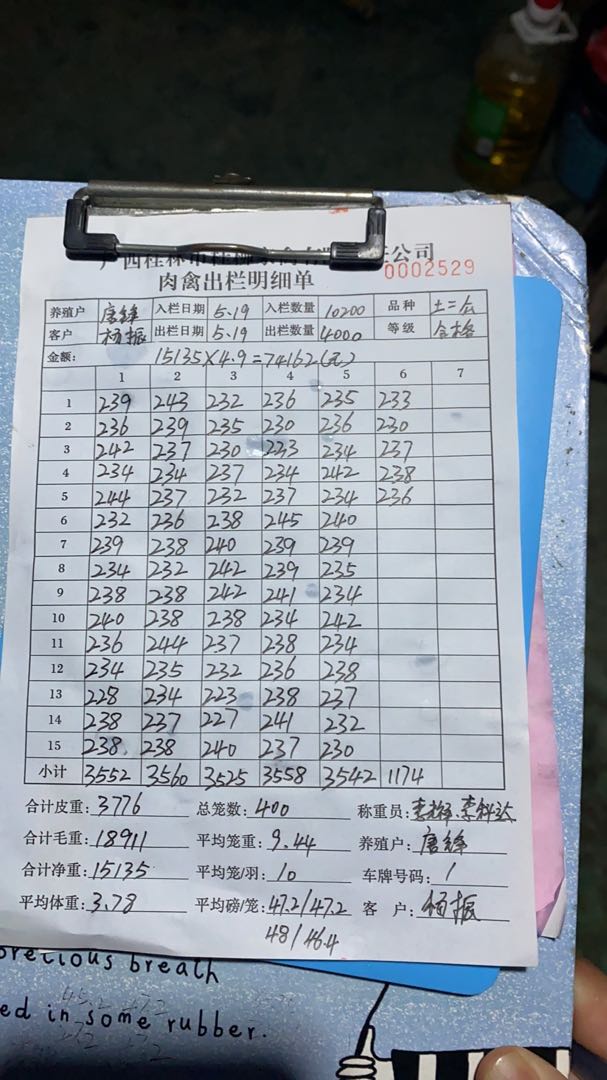 广西桂林市桂柳家禽有限责任公司
0002529
肉禽出栏明细单
养殖户 唐锋 入栏日期 5.19 入栏数量 10200 品种 土二公
客户 杨振 出栏日期 5.19 出栏数量 4000 等级 合格
金额: 15135×4.9=74162(元)
1 2 3 4 5 6 7
1 239 243 232 236 235 233
2 236 239 235 230 236 230
3 242 237 230 233 234 237
4 234 234 237 234 242 238
5 244 237 232 237 234 236
6 232 236 238 245 240
7 239 238 240 239 239
8 234 232 242 239 235
9 238 238 242 241 234
10 240 238 238 234 242
11 236 244 237 238 234
12 234 235 232 236 238
13 228 234 223 238 237
14 238 237 227 241 232
15 238 238 240 237 230
小计 3552 3560 3525 3558 3542 1174
合计皮重: 3776 总笼数: 400 称重员:
合计毛重: 18911 平均笼重: 9.44 养殖户: 唐锋
合计净重: 15135 平均笼/羽: 10 车牌号码: 1
平均体重: 3.78 平均磅/笼: 47.2/47.2 客户: 杨振
48/46.4
precious breath
ed in some rubber.